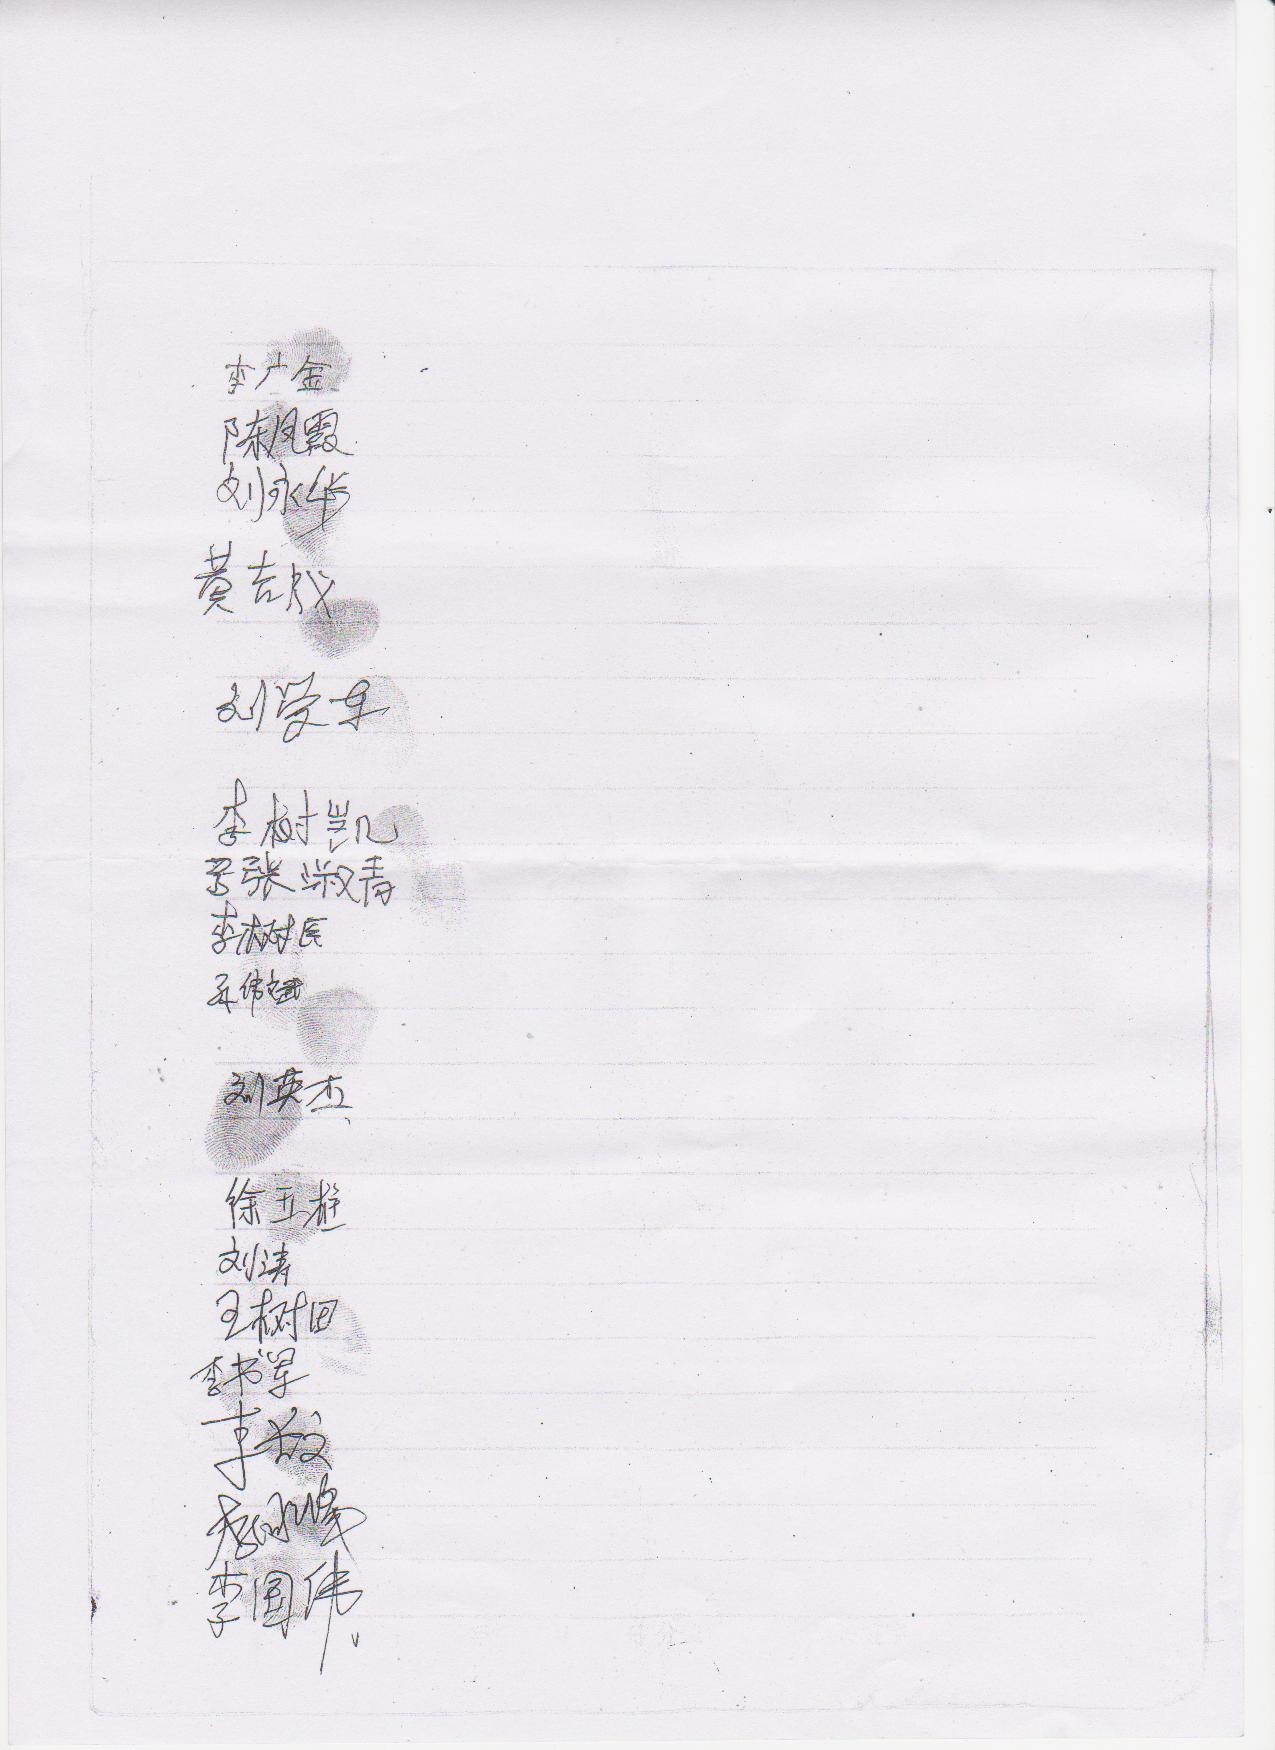 李广金
陈凤霞
刘永华
黄吉
刘荣
李树凯
张淑青
李树民
孙伟斌
刘英杰
徐玉柱
刘涛
王树田
李书军
李
李国伟